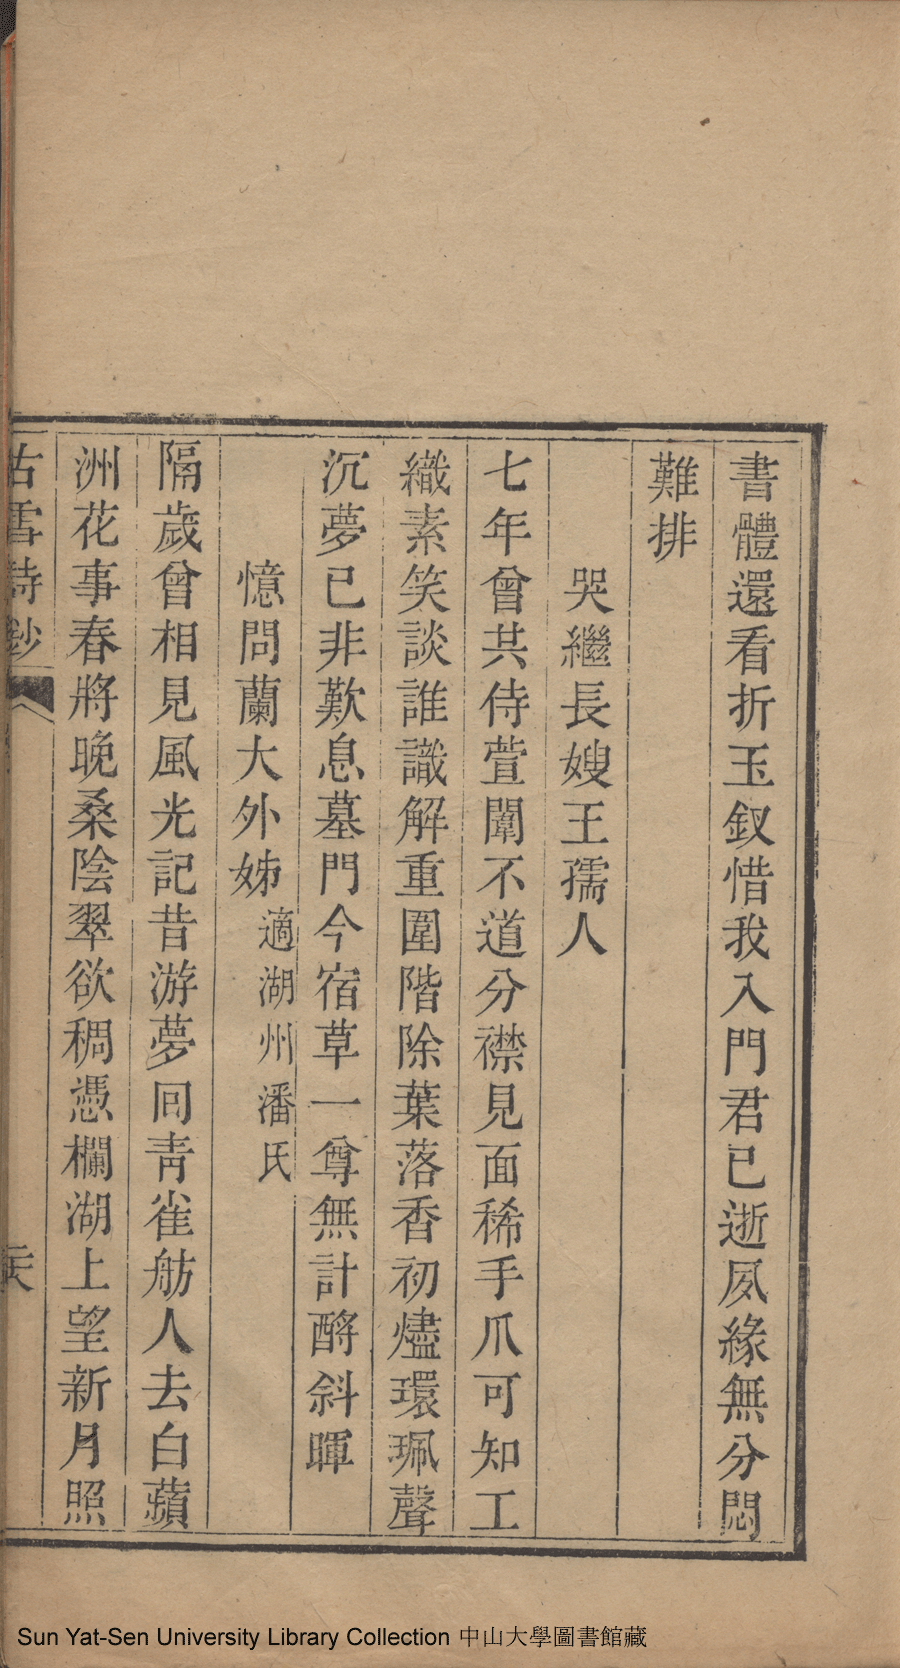 書體還看折玉釵惜我入門君已逝夙緣無分悶
難排
哭繼長嫂王孺人
七年曾共侍萱闈不道分襟見面稀手爪可知工
織素笑談誰識解重圍階除葉落香初燼環珮聲
沉夢已非歎息墓門今宿草一尊無計酹斜暉
憶問蘭大外姊適湖州潘氏
隔歲曾相見風光記昔游夢同青雀舫人去白蘋
洲花事春將晚桑陰翠欲稠憑欄湖上望新月照
古雪詩鈔
Sun Yat-Sen University Library Collection 中山大學圖書館藏